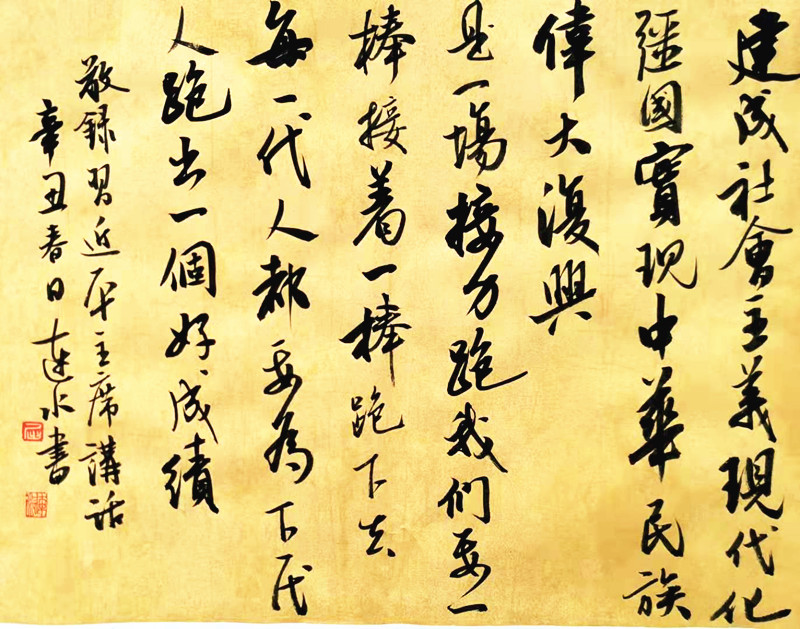 建成社會主義現代化
彊國實現中華民族
偉大復興
是一場接力跑我们要一
棒接着一棒跑下去
每一代人都要為下一代
人跑出一個好成績
敬録習近平主席講話
辛丑春日水書